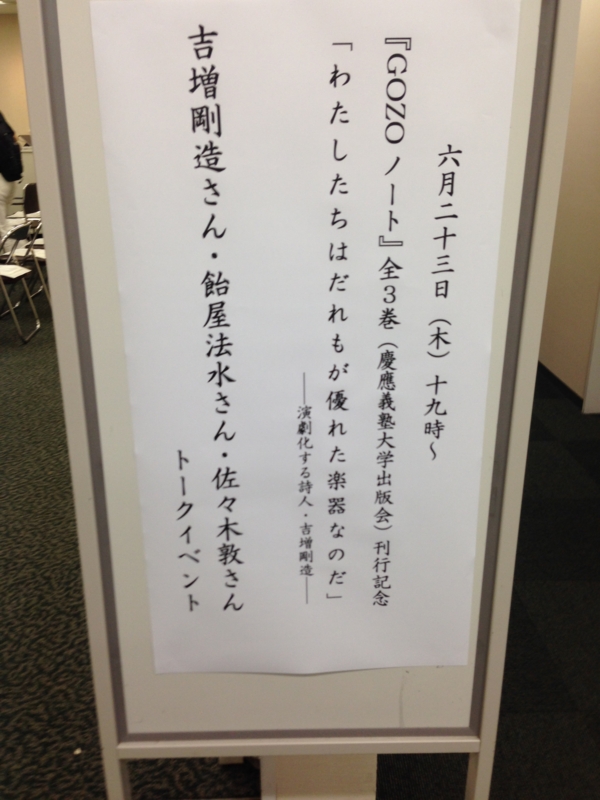 六月二十三日（木）十九時～
『GOZOノート』全３巻（慶應義塾大学出版会）刊行記念
「わたしたちはだれもが優れた楽器なのだ」
――演劇化する詩人・吉増剛造――
吉増剛造さん・飴屋法水さん・佐々木敦さん
トークイベント